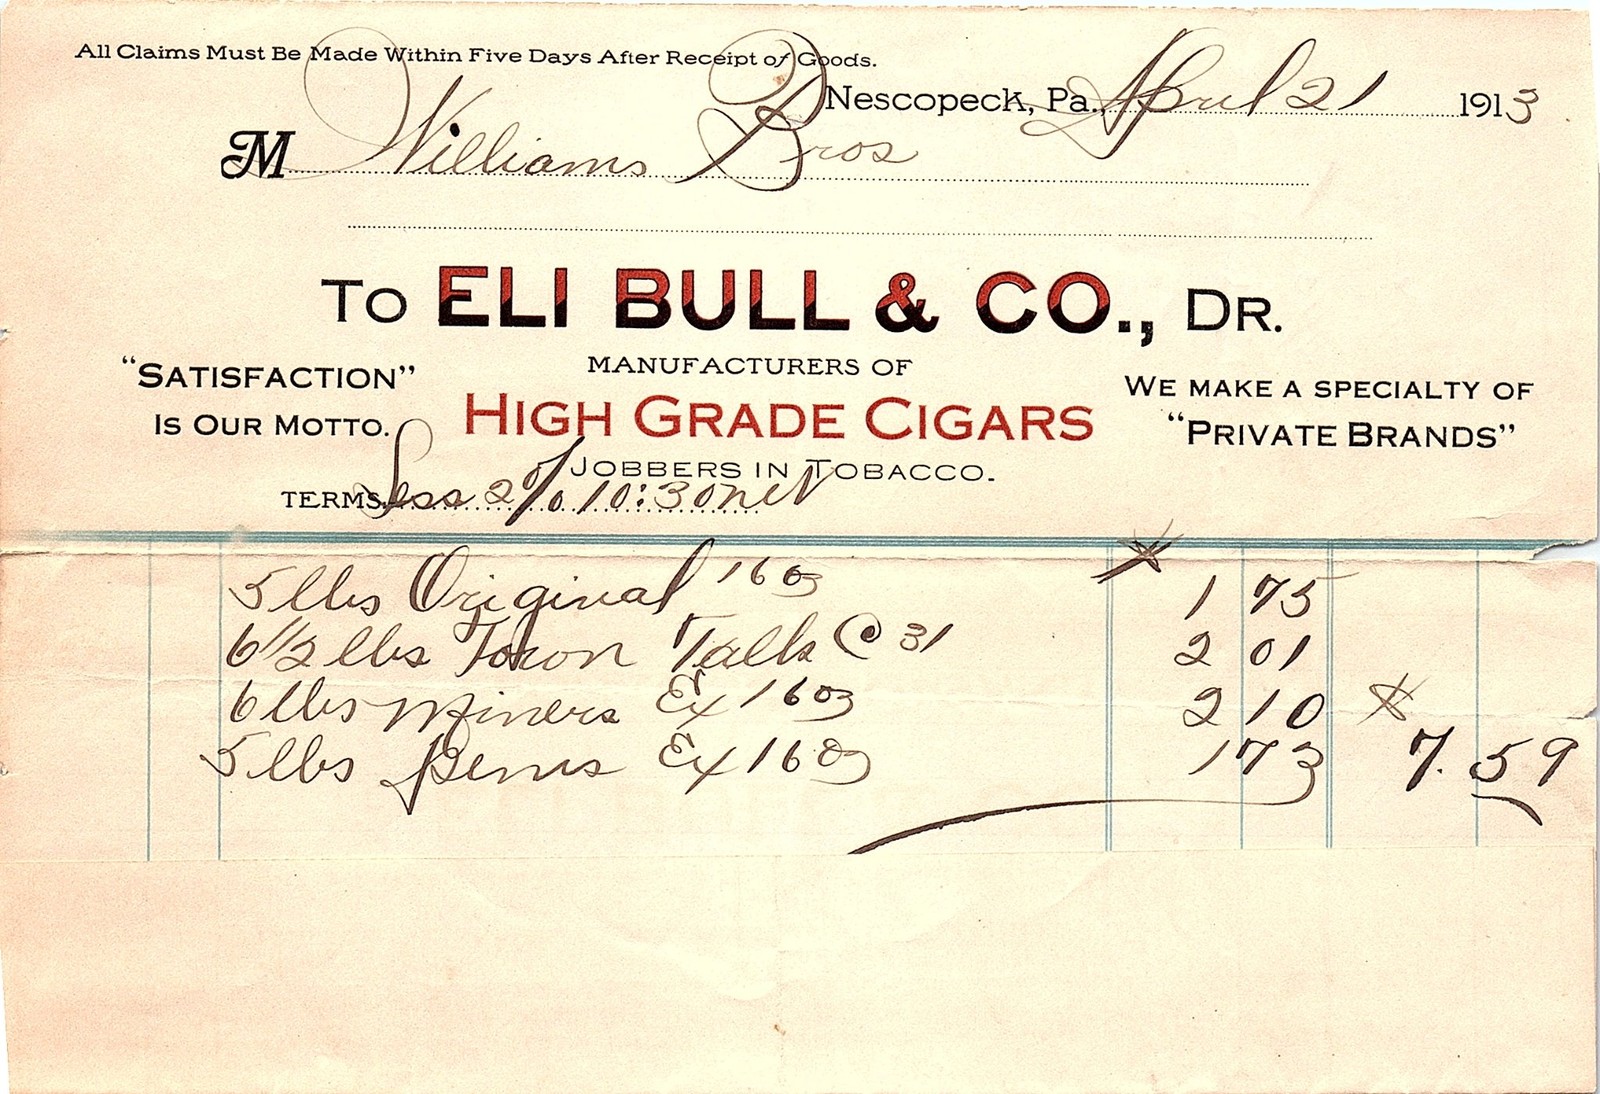 All Claims Must Be Made Within Five Days After Receipt of Goods.
Nescopeck, Pa., April 21 1913
M Williams Bros
To ELI BULL & CO., DR.
"SATISFACTION" IS OUR MOTTO.
MANUFACTURERS OF
HIGH GRADE CIGARS
WE MAKE A SPECIALTY OF "PRIVATE BRANDS"
JOBBERS IN TOBACCO.
TERMS Less 2% 10:30 net
5 lbs Original 16 oz 1 75
6 1/2 lbs Town Talk @ 31 2 01
6 lbs Miners Ex 16 oz 2 10
5 lbs Ex 16 oz 1 73 7.59